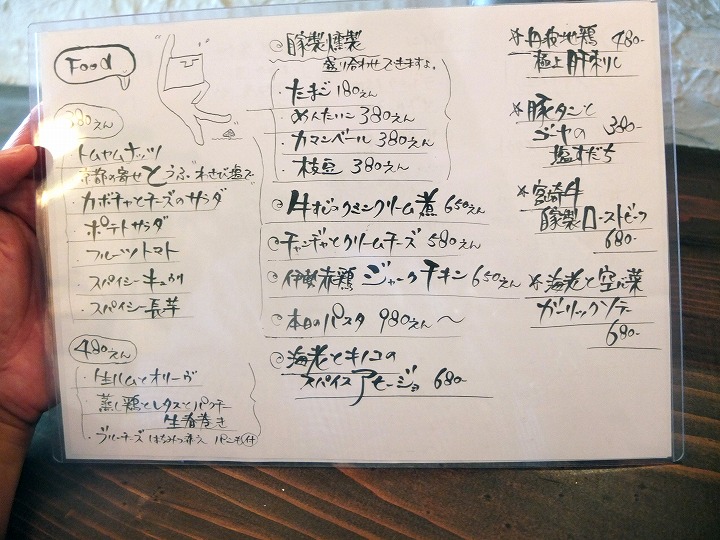 Food
380えん
・トムヤムナッツ
・京都の寄せとうふ わさび塩で
・カボチャとチーズのサラダ
・ポテトサラダ
・フルーツトマト
・スパイシーキュウリ
・スパイシー長芋
480えん
・生ハムとオリーヴ
・蒸し鶏とレタスとパクチー
生春巻き
・ブルーチーズ はちみつ添え パンも付
◎自家製燻製
盛り合わせできますよ。
・たまご180えん
・めんたいこ 380えん
・カマンベール 380えん
・枝豆 380えん
◎牛すじクミンクリーム煮 650えん
◎チャンヂャとクリームチーズ 580えん
◎伊勢赤鶏 ジャークチキン 650えん
◎本日のパスタ 980えん〜
◎海老とキノコの
スパイスアヒージョ 680-
*丹波地鶏 480-
極上肝刺し
*豚タンと
ゴーヤの 380-
塩すだち
*宮崎牛
自家製ローストビーフ
680-
*海老と空心菜
ガーリックソテー
680-